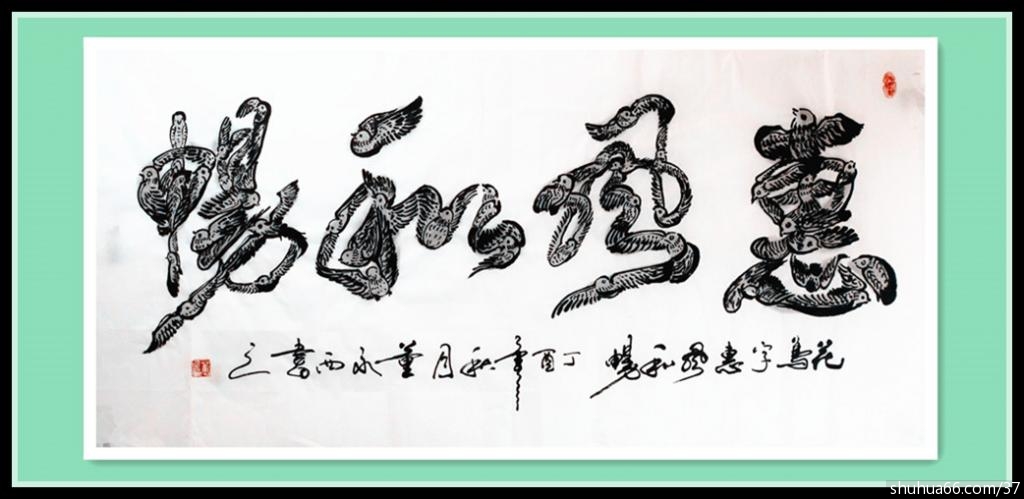 惠风和畅
花鸟字惠風和暢丁酉年秋月董永西書之
shuhua66.com/37